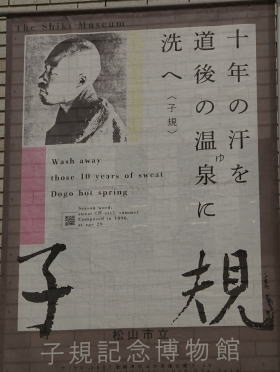 The Shiki Museum
十年の汗を
道後の温泉に
ゆ
洗へ
〈子規〉
Wash away
those 10 years of sweat
Dogo hot spring
Season word:
sweat
Composed in 1896,
at age 29
子規
松山市立
子規記念博物館